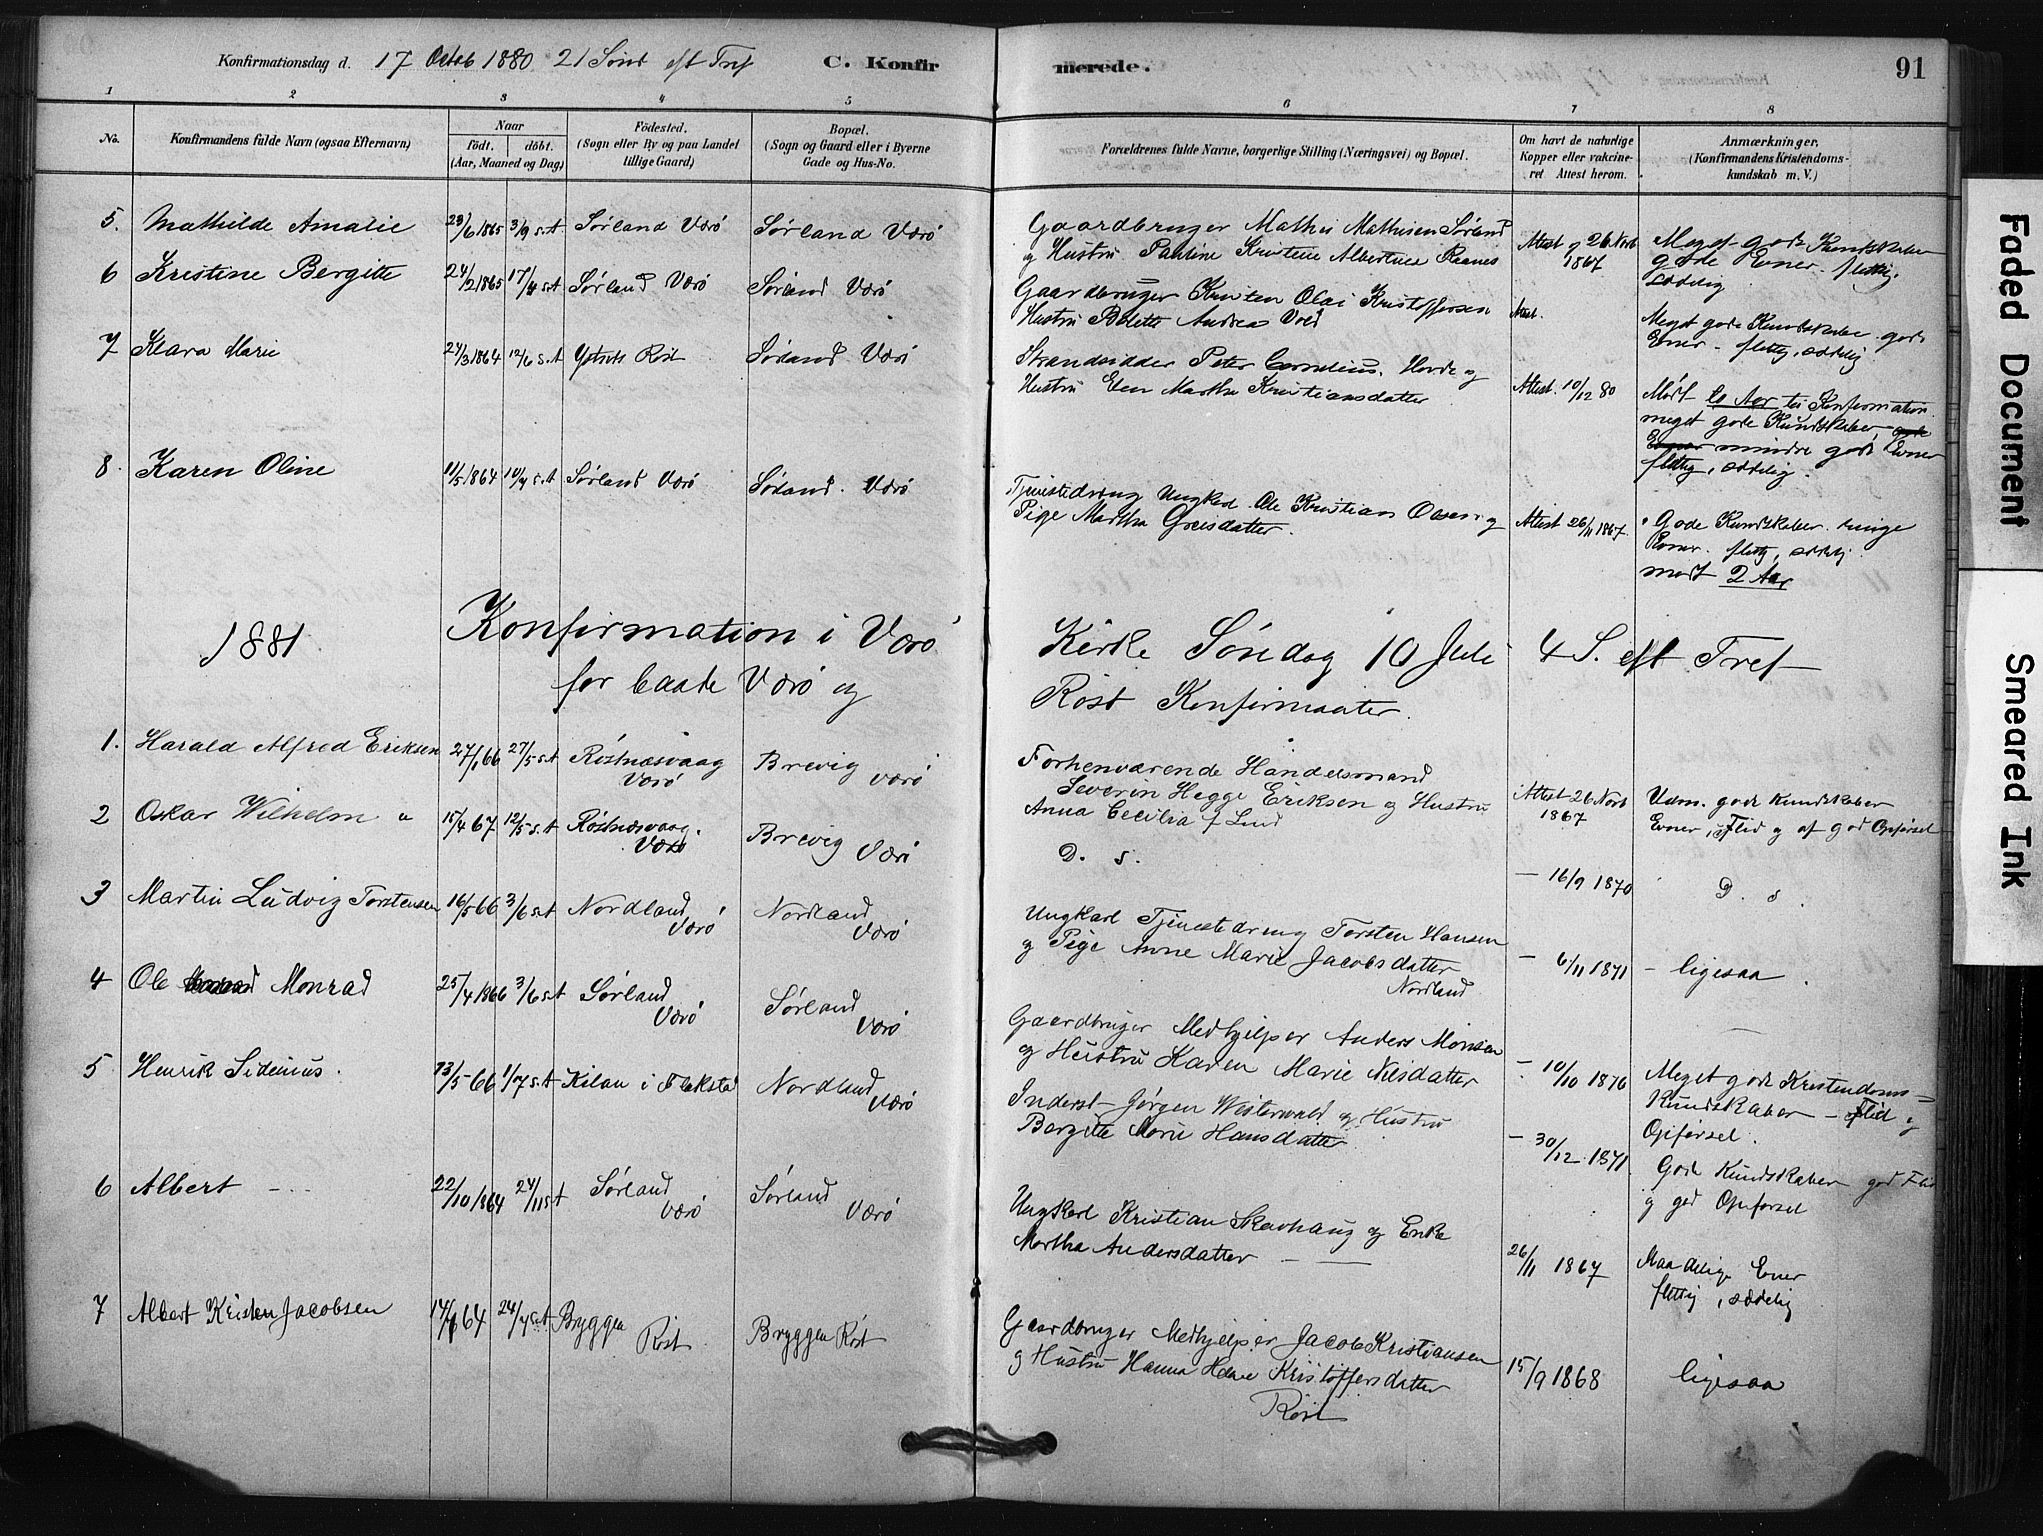 Konfirmationsdag d. 17 Octob 1880 21 Sönd eft Tref C. Konfirmerede. 91
1 2 3 4 5 6 7 8
No. Konfirmandens fulde Navn (ogsaa Efternavn) Naar födt. döbt. (Aar, Maaned og Dag) Födested. (Sogn eller By og paa Landet tillige Gaard) Bopæl. (Sogn og Gaard eller i Byerne Gade og Hus-No. Forældrenes fulde Navne, borgerlige Stilling (Næringsvei) og Bopæl. Om havt de naturlige Kopper eller vakcineret Attest herom. Anmærkninger, (Konfirmandens Kristendomskundskab m. V.)
5. Mathilde Amalie 23/6 1865 3/9 s.A Sørland Værö Sørland Værö
Gaardbruger Mathis Mathisen Sørland
og Hustru Pauline Kristine Albertine
Attest 26 Novb 1867
Meget gode Kundskaber
gode Evner. flittig,
sædelig
6 Kristine Bergitte 24/2 1865 17/4 s.A Sørland Værö Sørland Værö
Gaardbruger Kristen Olai Kristoffersen
Hustru Bolette Andrea
Attest.
Meget gode Kundskaber gode
Evner - flittig, sædelig
7 Klara Marie 24/3 1864 12/6 s.A Røst Sørland Værö
Strandsidder Peter Cornelius og
Hustru Elen Martha Kristiansdatter
Attest. 10/12 80
Mødt to Aar til Konfirmation
meget gode Kundskaber gode
Evner mindre gode Evner
flittig, sædelig.
8. Karen Oline 11/5 1864 10/7 s.A Sørland Værö Sørland. Værö
Tjenestedreng Ungkarl Ole Kristian Olsen og
Pige Martha Greisdatter.
Attest 26/11 1867.
Gode Kundskaber. ringe
Evner. flittig, sædelig
mødt 2 Aar
1881 Konfirmation i Værö Kirke Söndag 10 Juli 4 S. eft Tref
for baade Værö og Röst Konfirmanter.
1. Harald Alfred Eriksen 27/1 66 27/5 s.A Röstnæsvaag Værö Brevig Værö
Forhenværende Handelsmand
Severin Hegge Eriksen og Hustru
Anna Cecilia f Lind
Attest 26 Novb 1867
Udm. gode Kundskaber
Evner, Flid og af god Opførsel
2 Oskar Wilhelm " 15/4 67 12/5 s.A Röstnæsvaag. Værö Brevig Værö
D. s.
- 16/9 1870
D. s.
3 Martin Ludvig Torstensen 16/5 66 3/6 s.A Nordland Værö Nordland Værö
Ungkarl Tjenestedreng Torsten Hansen
og Pige Anne Marie Jacobsdatter
Nordland
- 6/11 1871 - ligesaa.
4 Ole Monrad 25/4 1866 3/6 s.A Sørland Værö Sørland Værö
Gaardbruger Medhjelper Anders Monsen
og Hustru Karen Marie Nilsdatter
- 10/10 1876
Meget gode Kristendoms-
kundskaber - Flid og
Opførsel.
5 Henrik Sidenius. 13/5 66 1/7 s.A Kilan i Flakstad Nordland Værö
Inderst Jørgen Westerwald og Hustru
Bergitte Marie Hansdatter
- 30/12 1871.
God Kundskaber god Flid
og god Opførsel
6 Albert - - - 22/10 1864 24/11 s.A Sørland Værö Sørland Værö
Ungkarl Kristian Skavhaug og Enke
Martha Andersdatter
26/11 1867
Maadelige Evner
flittig, sædelig
7 Albert Kristen Jacobsen 14/4 64 24/7 s.A Bryggen Röst. Bryggen Röst
Gaardbruger Medhjelper Jacob Kristiansen
og Hustru Hanna Helene Kristoffersdatter
Röst
15/9 1868
ligesaa
Faded Document
Smeared Ink